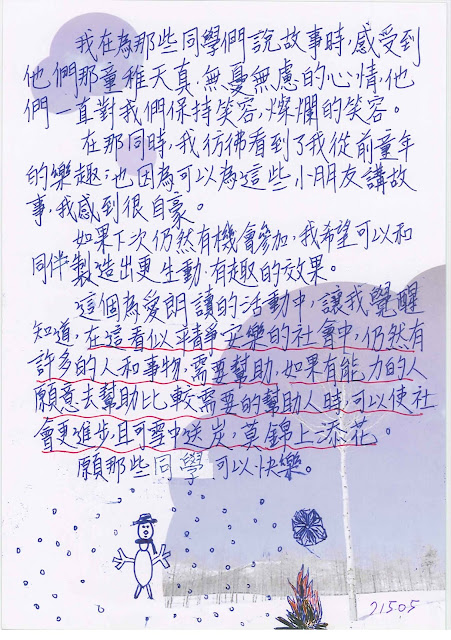 我在為那些同學們說故事時，感受到
他們那童稚天真、無憂無慮的心情，他
們一直對我們保持笑容，燦爛的笑容。
在那同時，我彷彿看到了我從前童年
的樂趣；也因為可以為這些小朋友講故
事，我感到很自豪。
如果下次仍然有機會參加，我希望可以和
同伴製造出更生動、有趣的效果。
這個為愛朗讀的活動中，讓我覺醒
知道，在這看似平靜安樂的社會中，仍然有
許多的人和事物，需要幫助，如果有能力的人
願意去幫助比較需要的幫助人時，可以使社
會更進步，且可雪中送炭，莫錦上添花。
願那些同學可以快樂。
21505